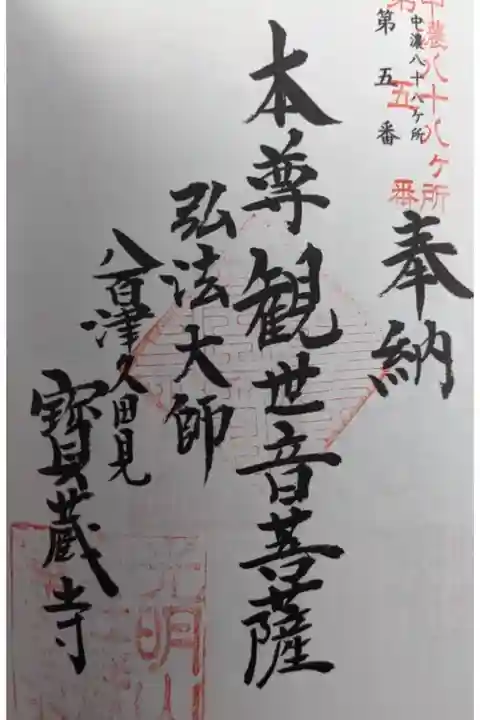 中濃八十八ヶ所
第五番
中濃八十八ヶ所
第五番
奉納
本尊観世音菩薩
弘法大師
八百津久田見
寳蔵寺
光明山